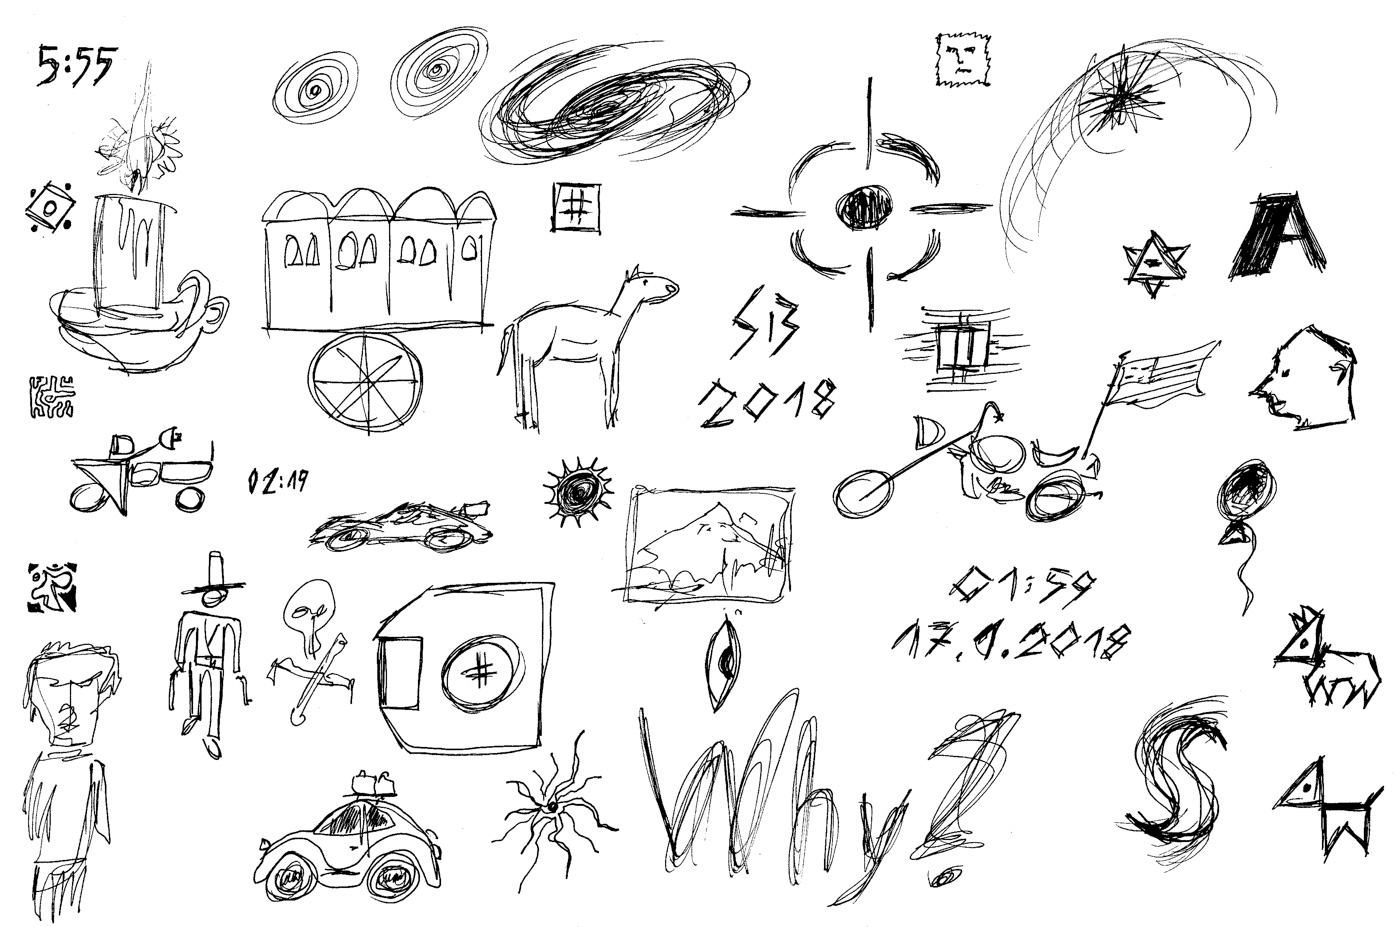 5:55
A
SB
2018
02:19
01:59
17.1.2018
Why?
S